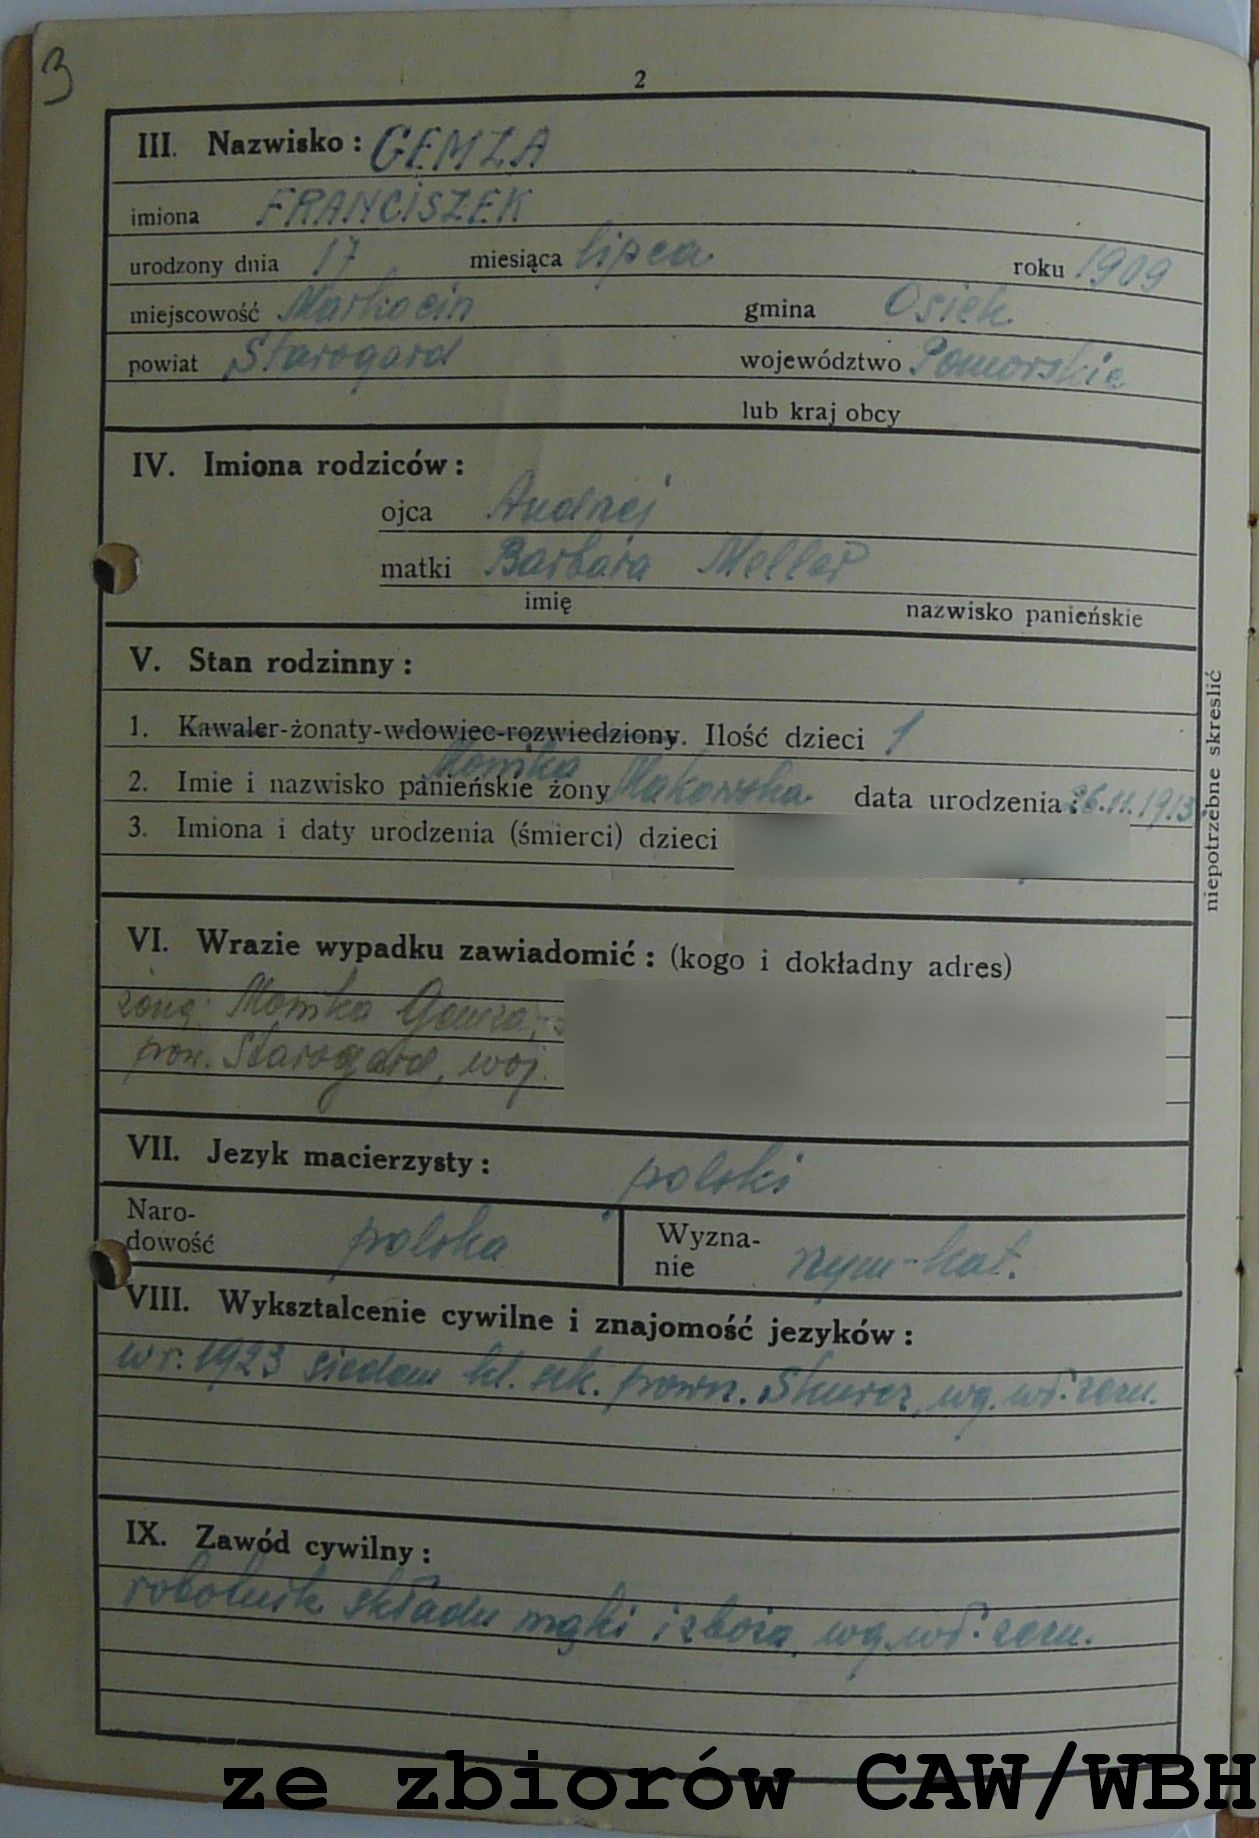 3
2
III. Nazwisko: GEMZA
imiona FRANCISZEK
urodzony dnia 17 miesiąca lipca roku 1909
miejscowość Markocin gmina Osiek
powiat Starogard województwo Pomorskie
lub kraj obcy
IV. Imiona rodziców:
ojca Andrzej
matki Barbara Meller
imię nazwisko panieńskie
V. Stan rodzinny:
1. Kawaler-żonaty-wdowiec-rozwiedziony. Ilość dzieci 1
2. Imie i nazwisko panieńskie żony Monika Makowska data urodzenia: 26.11.1913
3. Imiona i daty urodzenia (śmierci) dzieci
niepotrzebne skreslić
VI. Wrazie wypadku zawiadomić: (kogo i dokładny adres)
żona: Monika Gemza,
pow. Starogard, woj.
VII. Jezyk macierzysty: polski
Naro-
dowość polska
Wyzna-
nie rzym-kat.
VIII. Wyksztalcenie cywilne i znajomość jezyków:
w r. 1923 siedem kl. szk. powsz. Skurcz, wg. wł. zezn.
IX. Zawód cywilny:
robotnik składu mąki i zboża, wg. wł. zezn.
ze zbiorów CAW/WBH